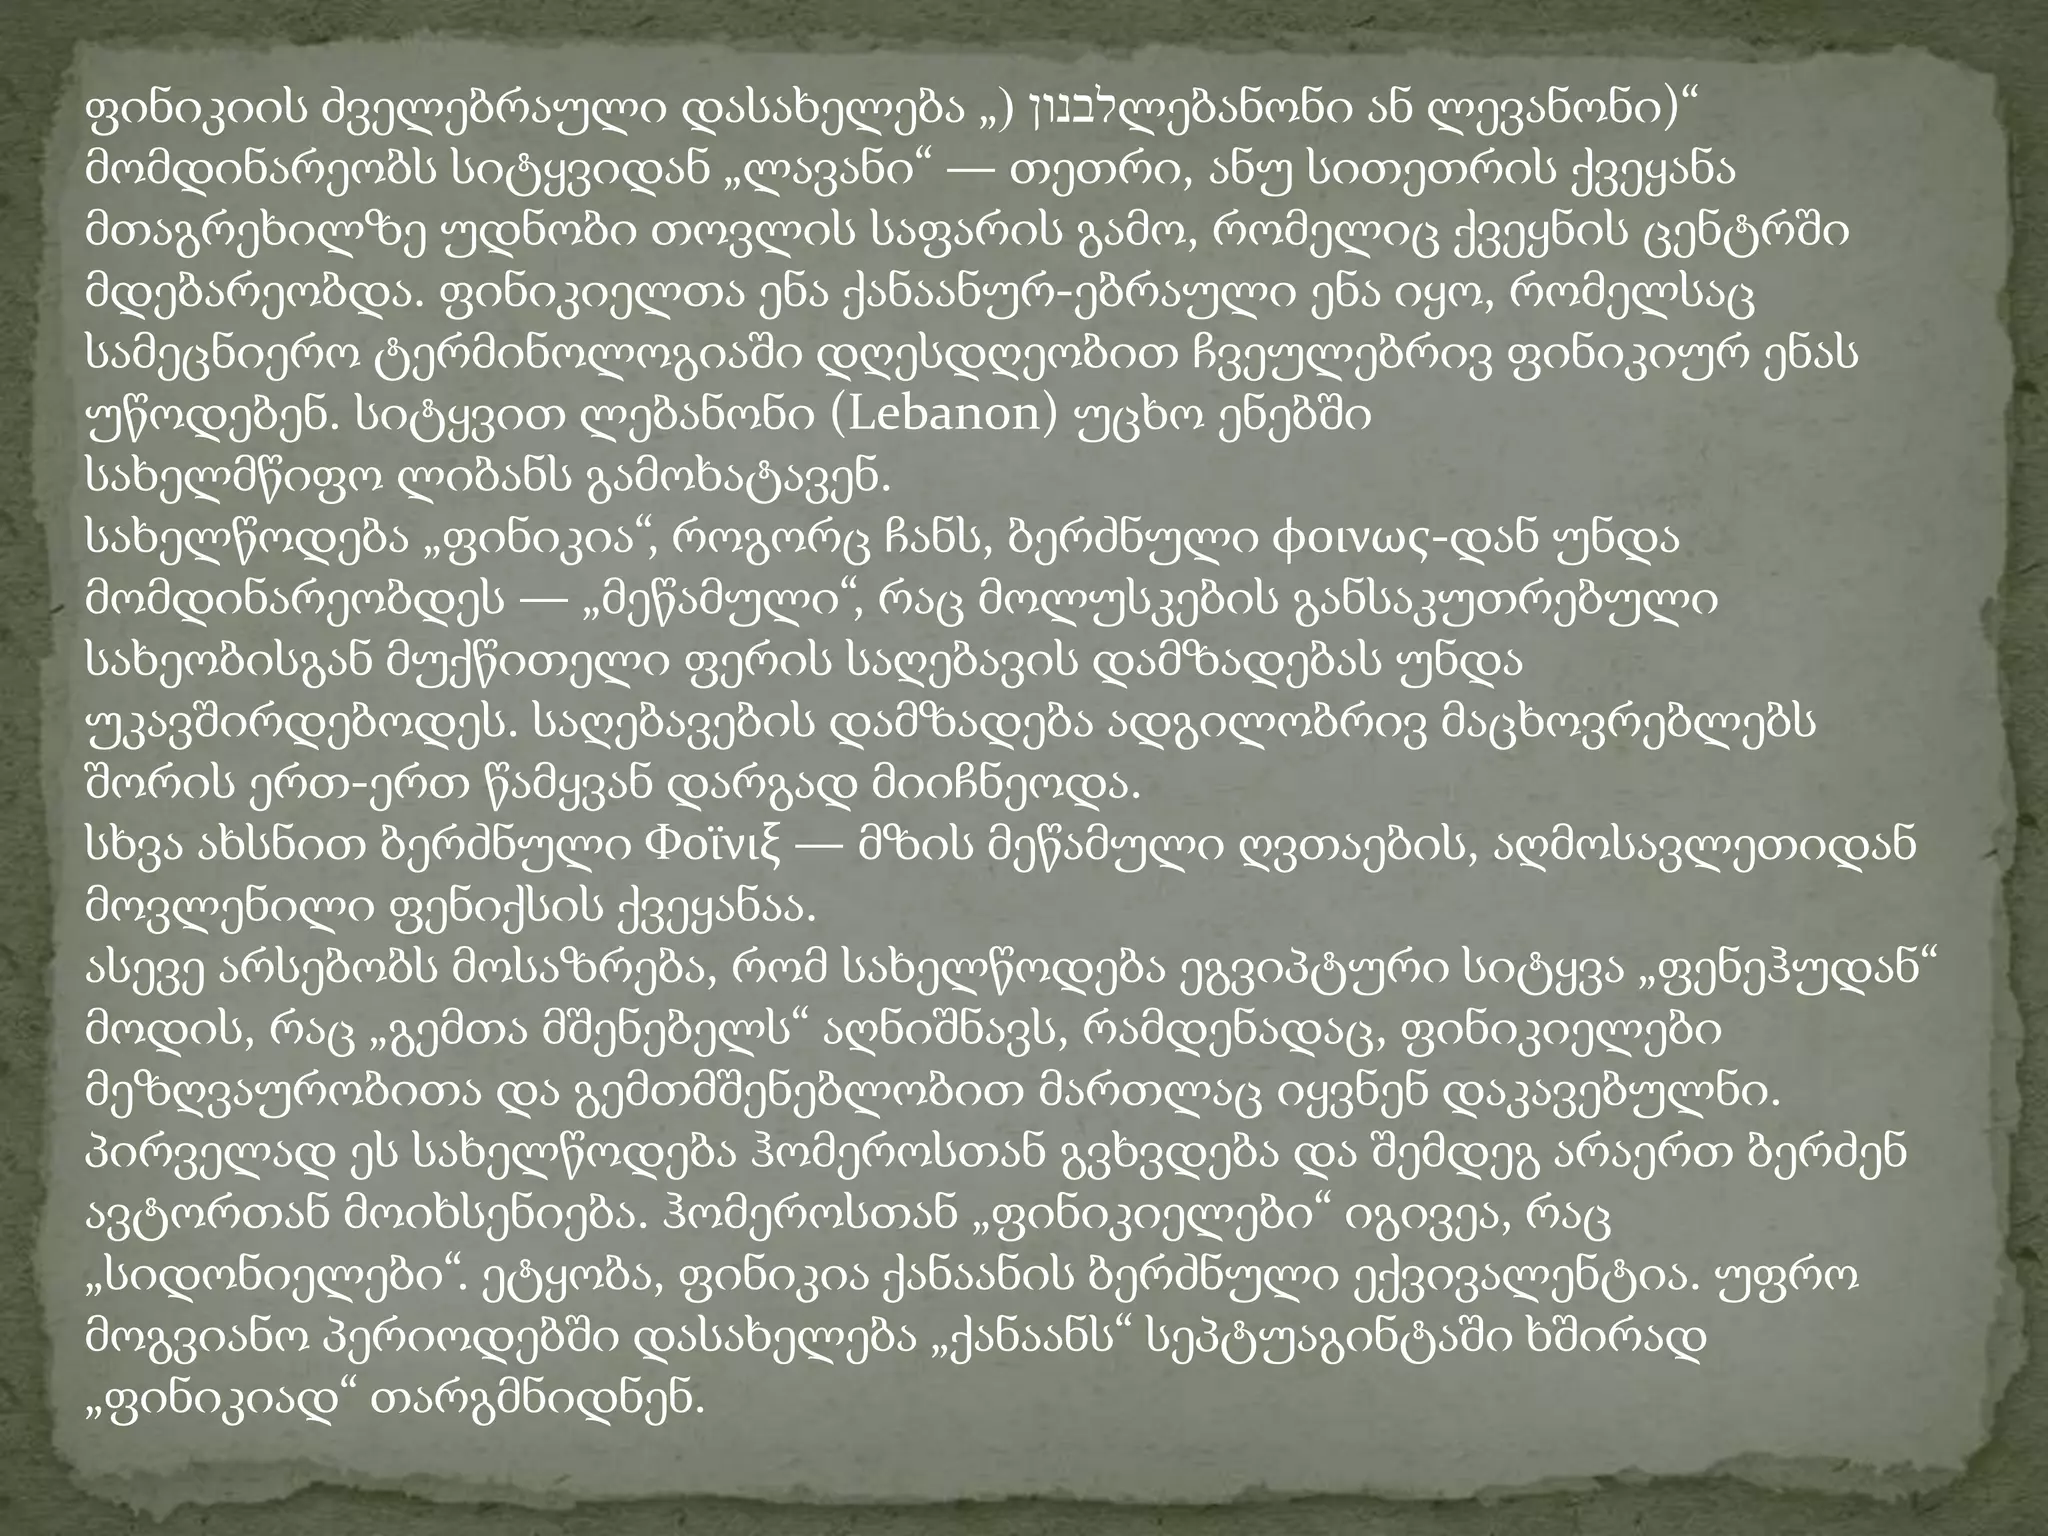 ფინიკიის ძველებრაული დასახელება „) לבנוןლებანონი ან ლევანონი)“
მომდინარეობს სიტყვიდან „ლავანი“ — თეთრი, ანუ სითეთრის ქვეყანა
მთაგრეხილზე უდნობი თოვლის საფარის გამო, რომელიც ქვეყნის ცენტრში
მდებარეობდა. ფინიკიელთა ენა ქანაანურ-ებრაული ენა იყო, რომელსაც
სამეცნიერო ტერმინოლოგიაში დღესდღეობით ჩვეულებრივ ფინიკიურ ენას
უწოდებენ. სიტყვით ლებანონი (Lebanon) უცხო ენებში
სახელმწიფო ლიბანს გამოხატავენ.
სახელწოდება „ფინიკია“, როგორც ჩანს, ბერძნული φοινως-დან უნდა
მომდინარეობდეს — „მეწამული“, რაც მოლუსკების განსაკუთრებული
სახეობისგან მუქწითელი ფერის საღებავის დამზადებას უნდა
უკავშირდებოდეს. საღებავების დამზადება ადგილობრივ მაცხოვრებლებს
შორის ერთ-ერთ წამყვან დარგად მიიჩნეოდა.
სხვა ახსნით ბერძნული Φοϊνιξ — მზის მეწამული ღვთაების, აღმოსავლეთიდან
მოვლენილი ფენიქსის ქვეყანაა.
ასევე არსებობს მოსაზრება, რომ სახელწოდება ეგვიპტური სიტყვა „ფენეჰუდან“
მოდის, რაც „გემთა მშენებელს“ აღნიშნავს, რამდენადაც, ფინიკიელები
მეზღვაურობითა და გემთმშენებლობით მართლაც იყვნენ დაკავებულნი.
პირველად ეს სახელწოდება ჰომეროსთან გვხვდება და შემდეგ არაერთ ბერძენ
ავტორთან მოიხსენიება. ჰომეროსთან „ფინიკიელები“ იგივეა, რაც
„სიდონიელები“. ეტყობა, ფინიკია ქანაანის ბერძნული ექვივალენტია. უფრო
მოგვიანო პერიოდებში დასახელება „ქანაანს“ სეპტუაგინტაში ხშირად
„ფინიკიად“ თარგმნიდნენ.